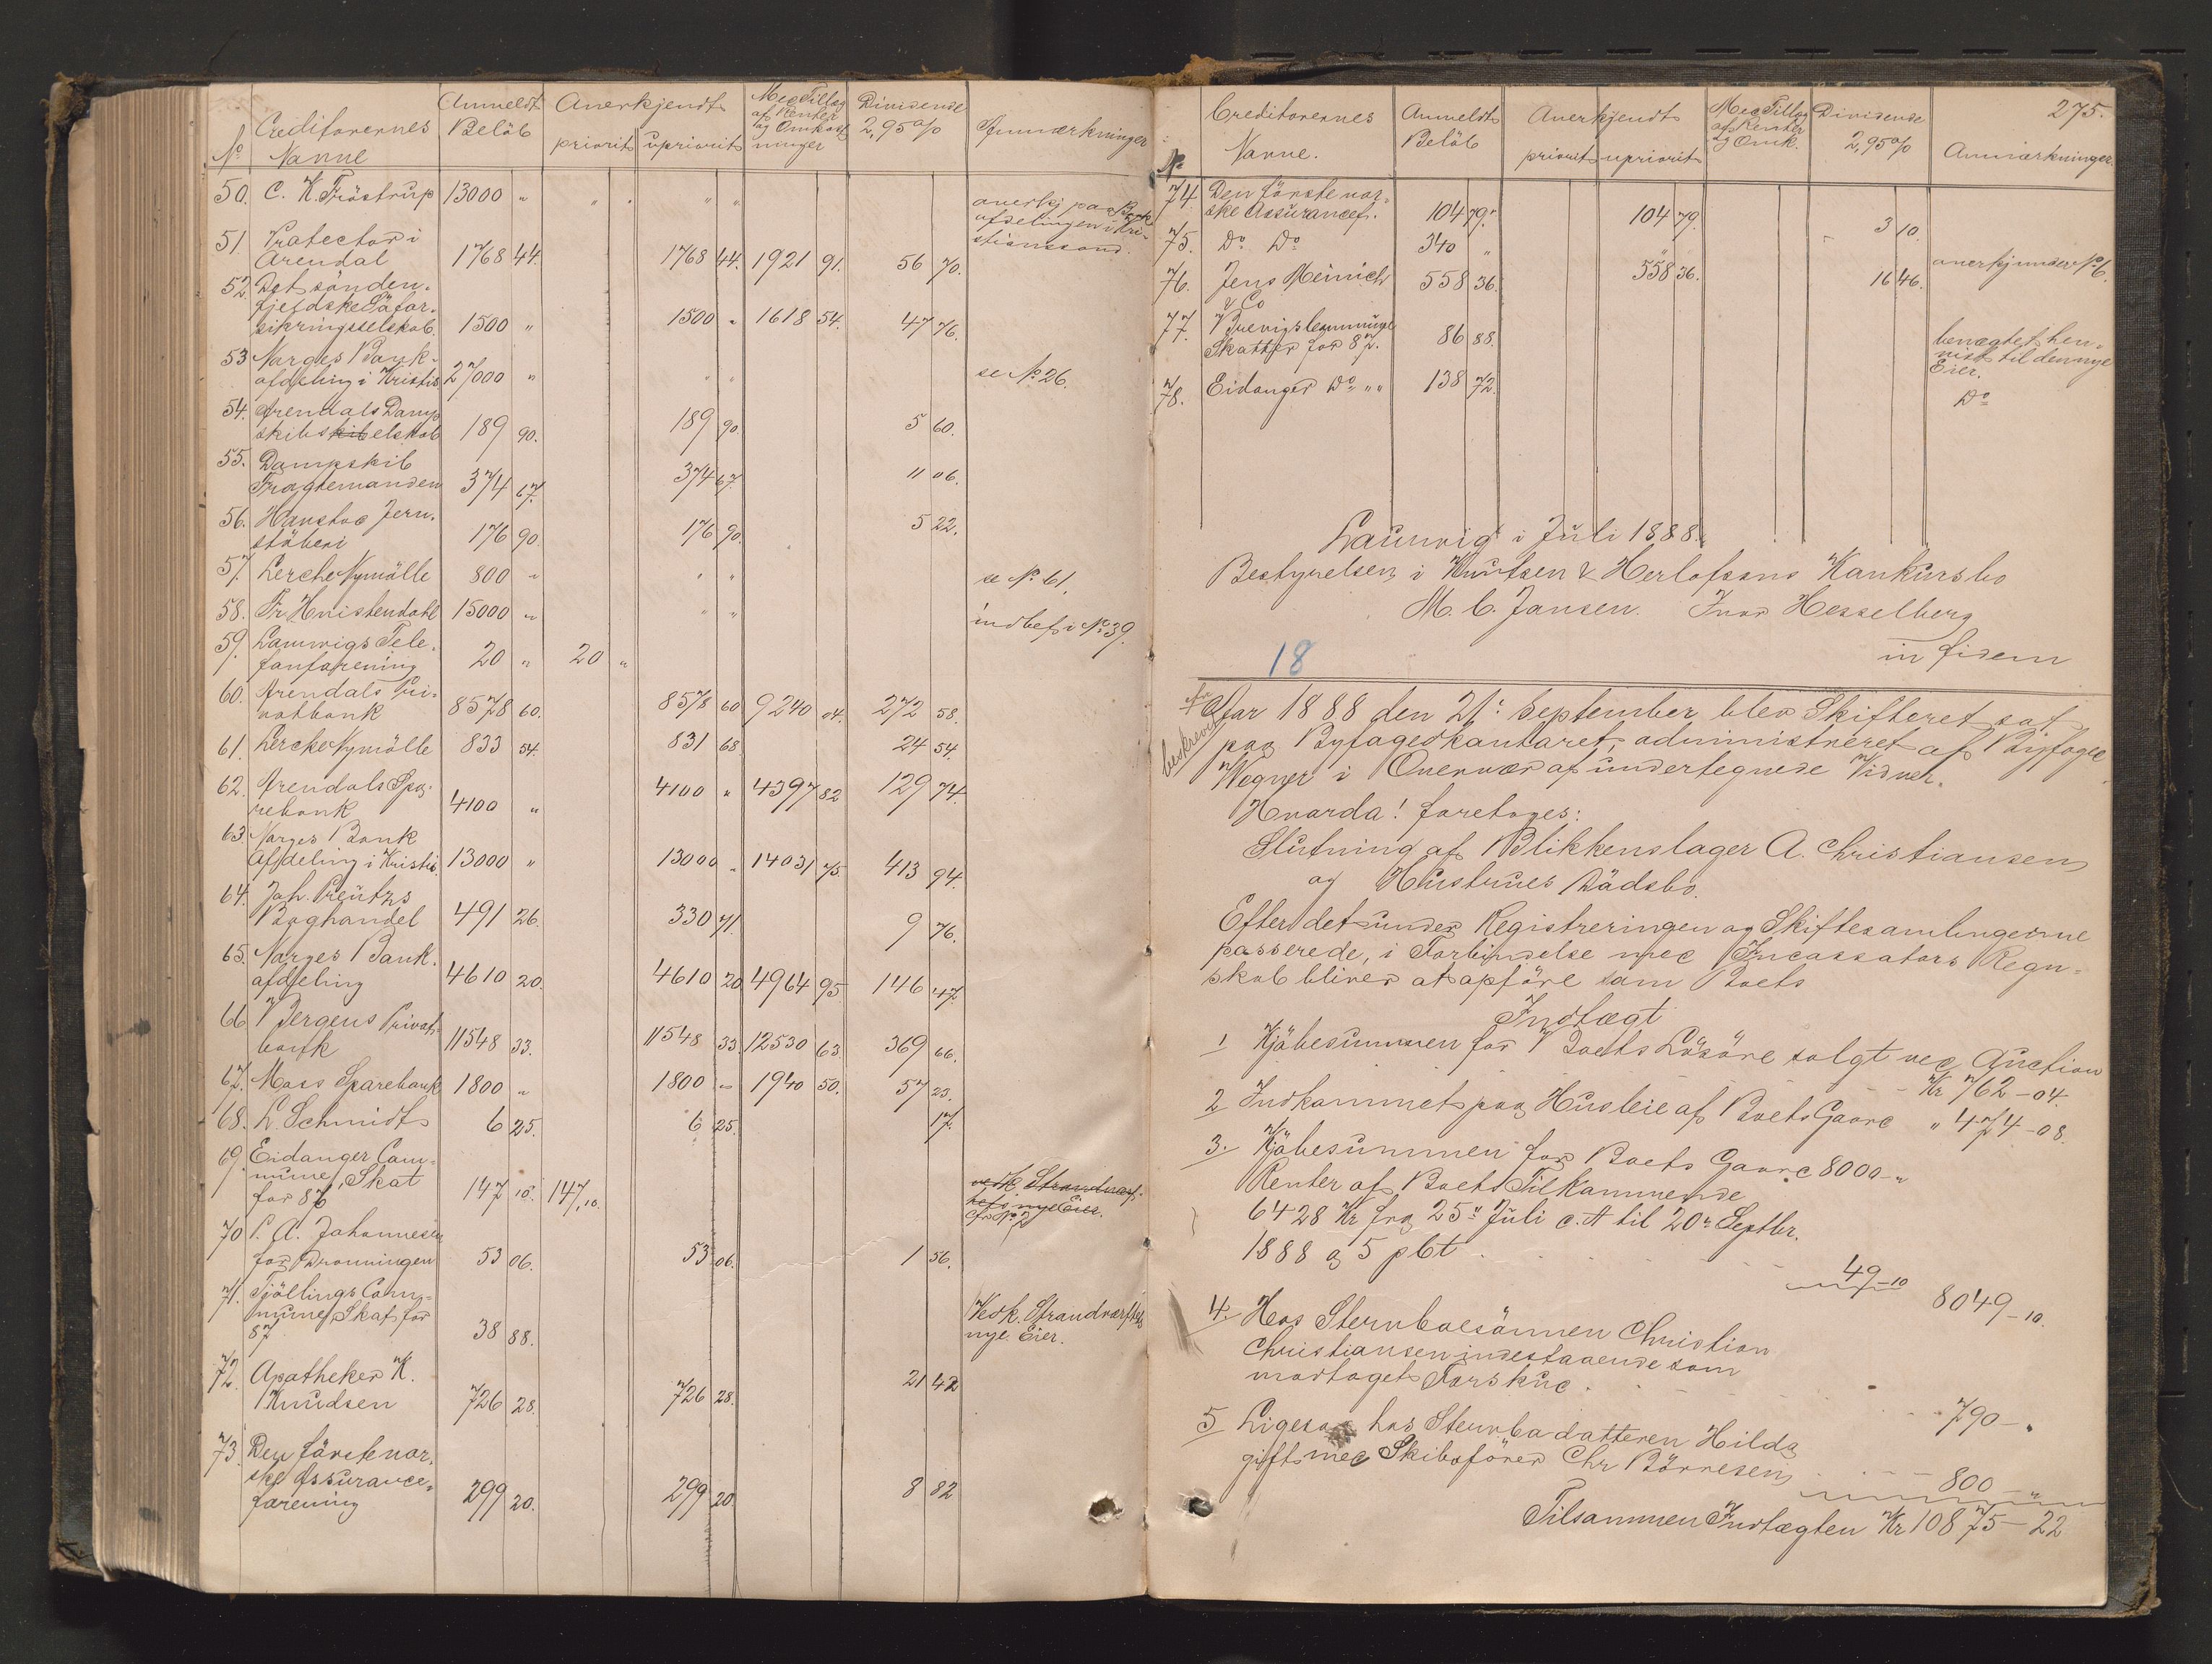 No Creditorernes Navne Anmeldt Beløb Anerkjendt priorit. upriorit. Med Tillæg af Renter og Omkostninger Dividende 2,95 % Anmærkninger
50. C. K. Fröstrup 13000 " " " " " anerkj paa Bankafdelingen i Kri-
stianssand.
51. Protector i
Arendal 1768 44. 1768 44. 1921 91. 56 70.
52. Det sönden-
fjeldske Söfor-
sikringsselskab 1500 " 1500 " 1618 54. 47 76.
53 Norges Bank-
afdeling i Kristia 27000 " " " se No 26.
54. Arendals Damp
skibsselskab 189 90. 189 90. 5 60.
55. Dampskib
Fragtemanden 374 67. 374 67. 11 06.
56. Hanstoe Jern-
støberi 176 90. 176 90. 5 22.
57. Lerche Nymölle 800 " " " se No 61.
58. Fr Hvistendahl 15000 " " " indbef i No 39.
59. Laurvigs Tele-
fonforening 20 " 20 "
60. Arendals Pri-
vatbank 8578 60. 8578 60 9240 04. 272 58.
61. Lerche Nymölle 833 54. 831 68. 24 54.
62. Arendals Spa-
rebank 4100 " 4100 " 4397 82 129 74.
63. Norges Bank
Afdeling i Kristia. 13000 " 13000 " 14031 75. 413 94.
64. Joh. Preutzs
Boghandel 491 26. 330 71. 9 76.
65. Norges Bank-
afdeling 4610 20. 4610 20 4964 95. 146 47.
66 Bergens Privat-
bank 11548 33. 11548 33. 12530 63. 369 66.
67. Moss Sparebank 1800 " 1800 " 1940 50. 57 23.
68. L. Schmidt 6 25. 6 25. 17.
69. Eidanger Com-
mune, Skat
for 87 147 10. 147,10. vedk. Strandværf-
tets nye Eier.
cfr No 7
70 P. A. Johannesen
for Dronningen 53 06. 53 06. 1 56.
71. Tjöllings Com-
mune, Skat for
87 38 88. Vedk. Strandværftets
nye Eier.
72. Apotheker K.
Knudsen 726 28. 726 28. 21 42
73. Den förste nor-
ske Assurance-
forening 299 20. 299 20. 8 82
275.
No. Creditorernes Navne. Anmeldt Beløb Anerkjendt priorit. upriorit. Med Tillæg af Renter og Omk. Dividende 2,95 % Anmærkninger.
74. Den förste nor-
ske Assurancef. 104 79. 104 79. 3 10.
75. Do Do 340 " " anerkj under No 6.
76. Jens Meinich
& Co 558 36. 558 36. 16 46.
77. Brevigs Commune
Skatter for 87. 86 88. benægtet hen-
vist til den nye
Eier.
78. Eidanger Do " " 138 72. Do
Laurvig i Juli 1888.
Bestyrelsen i Knutsen & Herlofsons Konkursbo
M. C. Jansen. Ivar Hesselberg
in fidem
18
beskrevet
Aar 1888 den 21: September blev Skifteret sat
paa Byfogedkontoret, administreret af Byfoged
Wegner i Overvær af undertegnede Vidner.
Hvorda! foretoges:
Slutning af Blikkenslager A. Christiansen
og Hustrues Dödsbo.
Efter det under Registreringen og Skiftesamlingerne
passerede, i Forbindelse med Incassators Regn-
skab bliver at opföre som Boets
Indtægt
1 Kjöbesummen for Boets Lösöre solgt ved Auction
Kr 762-04.
2 Indkommet paa Husleie af Boets Gaard " 474-08.
3. Kjöbesummen for Boets Gaard 8000-"
Renter af Boets Tilkommende
6428 Kr fra 25" Juli c. A til 20" Septbr.
1888 a 5 pCt . . . 49-10 8049-10.
4. Hos Stervboesönnen Christian
Christiansen indestaaende som
modtaget Forskud . . . 790-"
5 Ligesaa hos Stervbodatteren Hilda
gift med Skibsförer Chr Börresen . . . 800-"
Tilsammen Indtægten Kr 10875-22